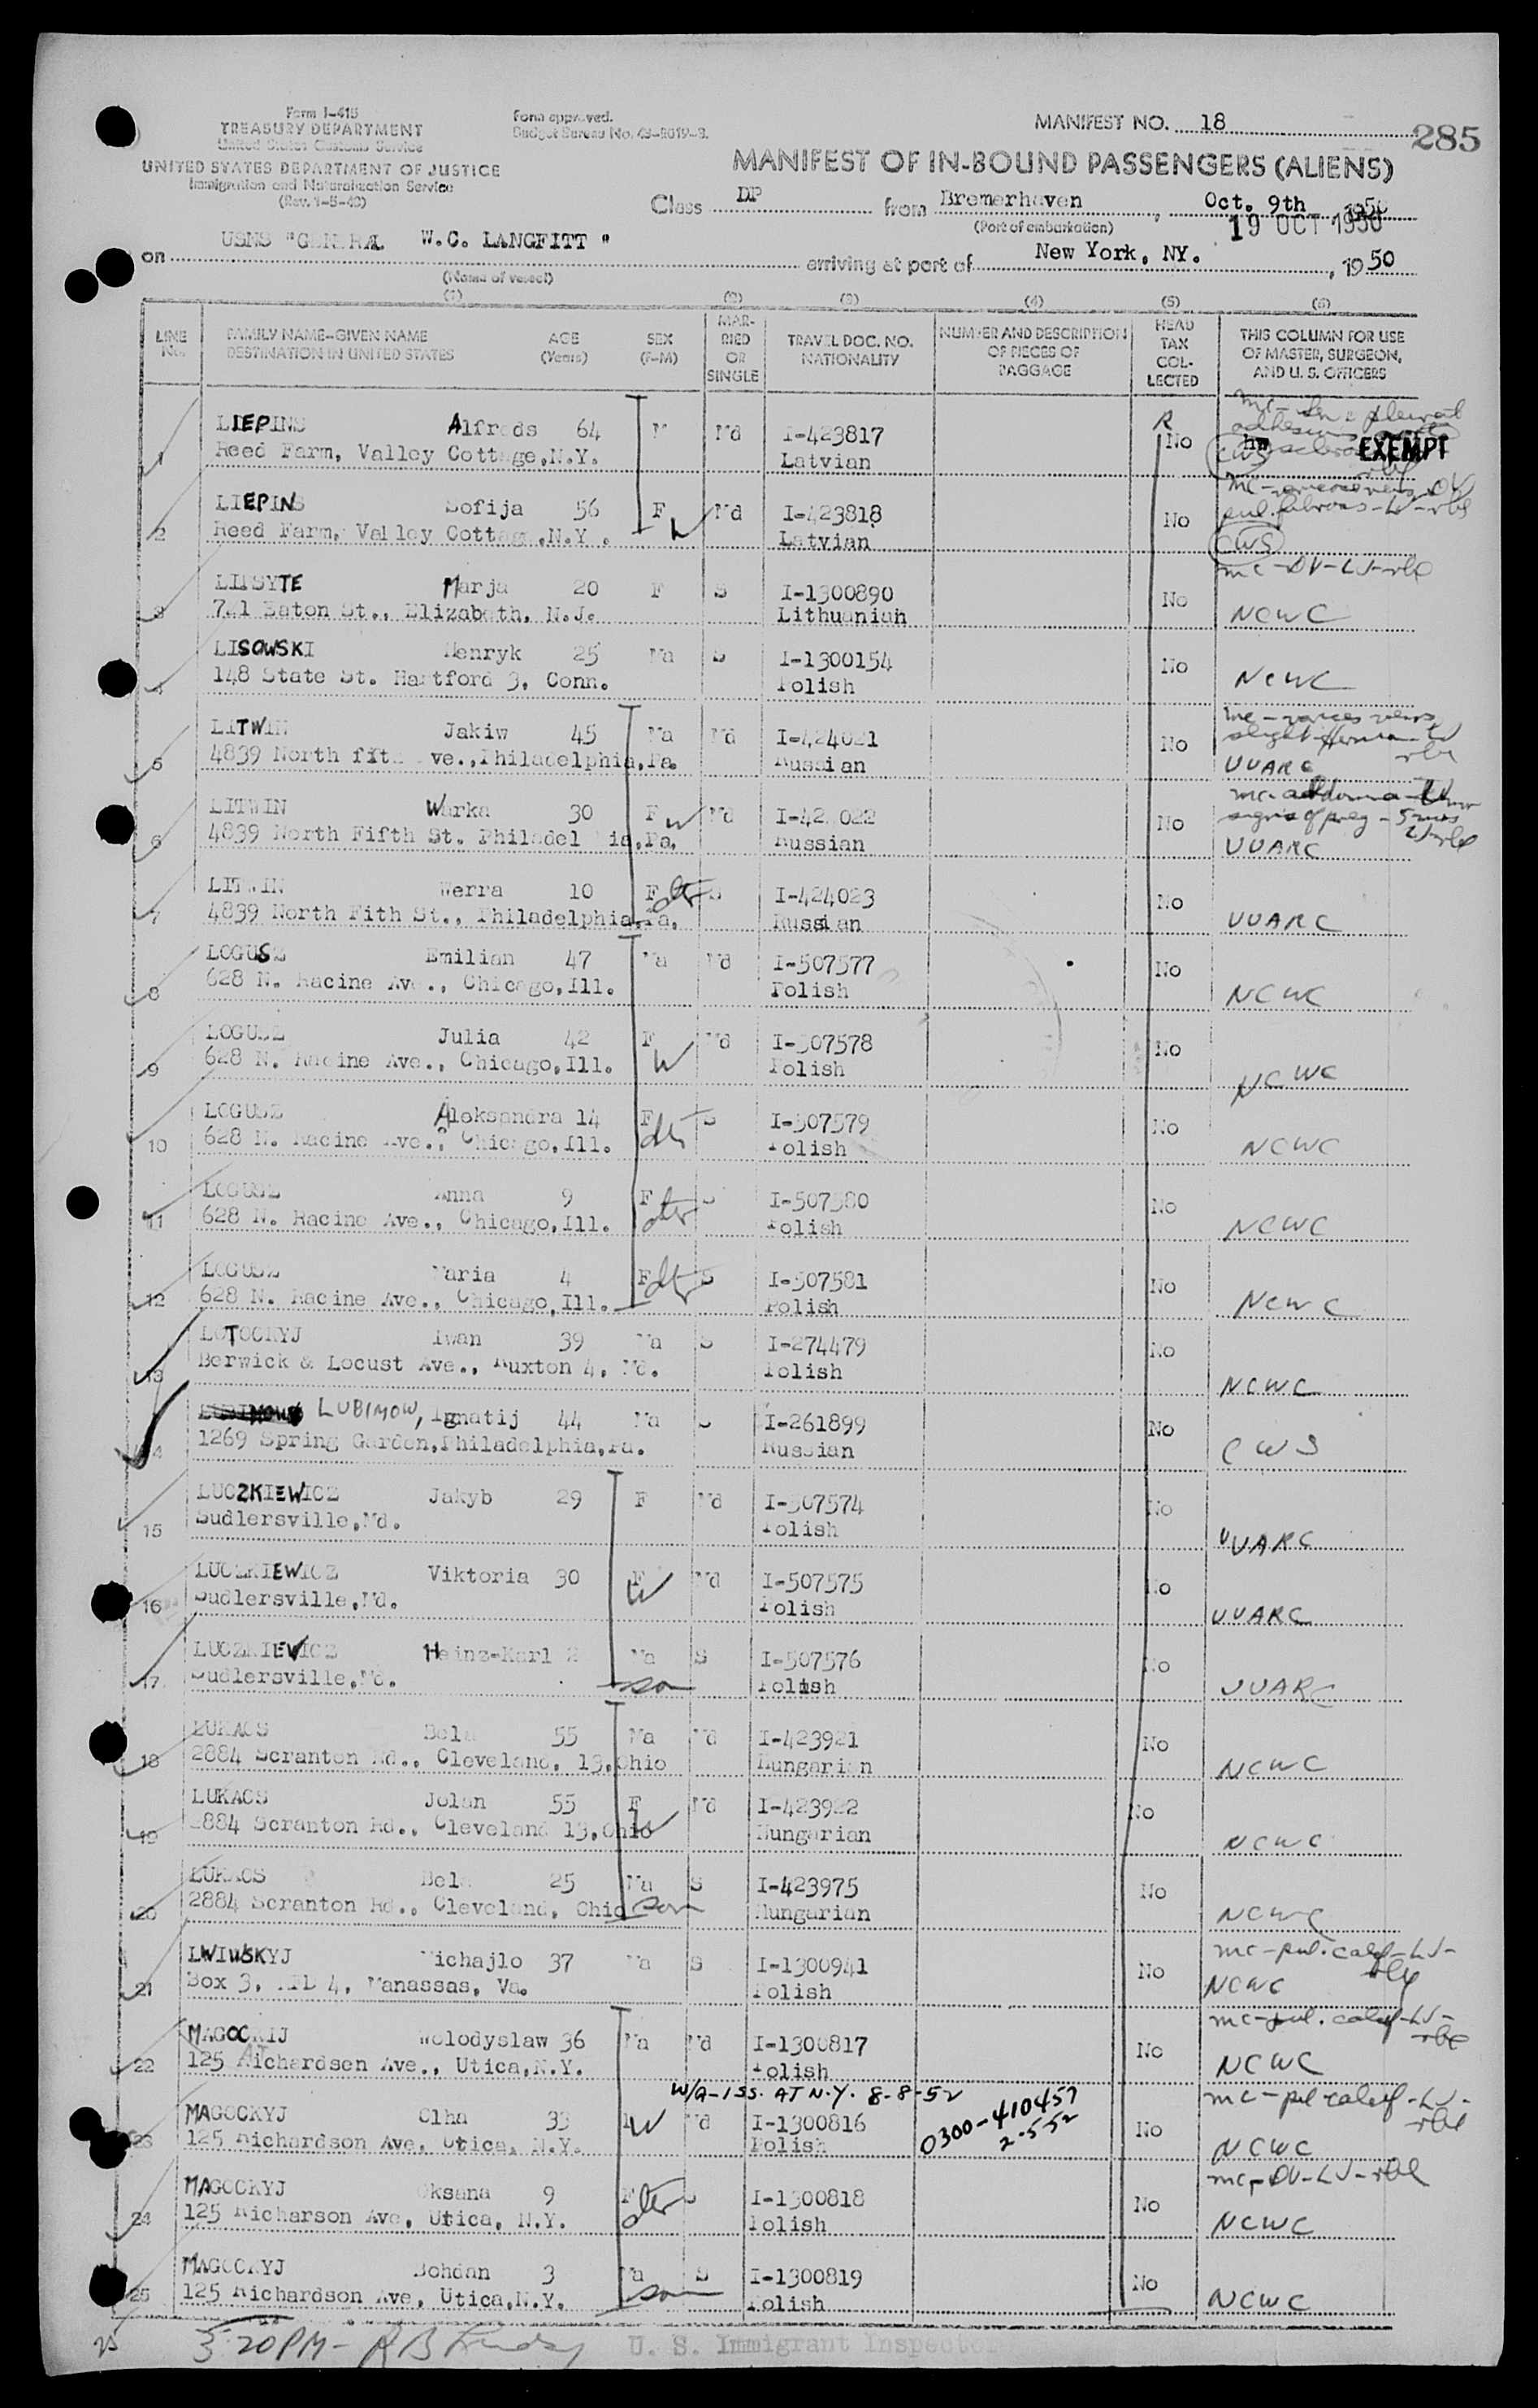 Form I-415
TREASURY DEPARTMENT
United States Customs Service
UNITED STATES DEPARTMENT OF JUSTICE
Immigration and Naturalization Service
(Rev. 1-5-49)
Form approved.
Budget Bureau No. 43-R019-3.
MANIFEST NO. 18
285
MANIFEST OF IN-BOUND PASSENGERS (ALIENS)
Class DP from Bremerhaven, Oct. 9th 1950
(Port of embarkation)
19 OCT 1950
on USNS "GENERAL W.C. LANGFITT" arriving at port of New York, NY., 1950
(Name of vessel)
(1) (2) (3) (4) (5) (6)
LINE No.
FAMILY NAME-GIVEN NAME
DESTINATION IN UNITED STATES
AGE (Years)
SEX (F-M)
MARRIED OR SINGLE
TRAVEL DOC. NO. NATIONALITY
NUMBER AND DESCRIPTION OF PIECES OF BAGGAGE
HEAD TAX COLLECTED
THIS COLUMN FOR USE OF MASTER, SURGEON, AND U. S. OFFICERS
1 LIEPINS Alfreds 64 M Md I-423817 No EXEMPT
Reed Farm, Valley Cottage,N.Y. Latvian CWS
2 LIEPINS Sofija 56 F W Md I-423818 No
Reed Farm, Valley Cottage,N.Y. Latvian CWS
mc-DV-LV-rbl
3 LIPSYTE Marja 20 F S I-1300890 No
721 Eaton St., Elizabeth, N.J. Lithuanian NCWC
4 LISOWSKI Henryk 25 Ma S I-1300154 No
148 State St. Hartford 3, Conn. Polish NCWC
5 LITWIN Jakiw 45 Ma Md I-424021 No
4839 North fith ve.,Philadelphia,Pa. Russian UUARC
6 LITWIN Warka 30 F W Md I-42 022 No
4839 North Fifth St. Philadel ia,Pa. Russian UUARC
7 LITWIN Werra 10 F dtr S I-424023 No
4839 North Fith St., Philadelphia,Pa. Russian UUARC
8 LOGUSZ Emilian 47 Ma Md I-507577 No
628 N. Racine Ave., Chicago,Ill. Polish NCWC
9 LOGUSZ Julia 42 F W Md I-507578 No
628 N. Racine Ave., Chicago,Ill. Polish NCWC
10 LOGUSZ Aleksandra 14 F dtr S I-507579 No
628 N. Racine Ave., Chicago,Ill. Polish NCWC
11 LOGUSZ Anna 9 F dtr S I-507580 No
628 N. Racine Ave., Chicago,Ill. Polish NCWC
12 LOGUSZ Maria 4 F dtr S I-507581 No
628 N. Racine Ave., Chicago,Ill. Polish NCWC
13 LOTOCKYJ Iwan 39 Ma S I-274479 No
Berwick & Locust Ave., Ruxton 4, Md. Polish NCWC
14 LUBIMOW, Ignatij 44 Ma S I-261899 No
1269 Spring Garden,Philadelphia,Pa. Russian CWS
15 LUCZKIEWICZ Jakyb 29 F Md I-507574 No
Sudlersville,Md. Polish UUARC
16 LUCZKIEWICZ Viktoria 30 F W Md I-507575 No
Sudlersville,Md. Polish UUARC
17 LUCZKIEWICZ Heinz-Karl 2 Ma S I-507576 No
Sudlersville,Md. son Polish UUARC
18 LUKACS Bela 55 Ma Md I-423921 No
2884 Scranton Rd., Cleveland, 13,Ohio Hungarian NCWC
19 LUKACS Jolan 55 F W Md I-423922 No
2884 Scranton Rd., Cleveland 13,Ohio Hungarian NCWC
20 LUKACS Bela 25 Ma S I-423975 No
2884 Scranton Rd., Cleveland, Ohio son Hungarian NCWC
21 LWIWSKYJ Michajlo 37 Ma S I-1300941 No mc-pul. calcif-LV-rbl
Box 3, RFD 4, Manassas, Va. Polish NCWC
22 MAGOCKIJ Wolodyslaw 36 Ma Md I-1300817 No mc-pul. calcif-LV-rbl
125 Richardson Ave., Utica,N.Y. Polish NCWC
W/A-ISS. AT N.Y. 8-8-52
23 MAGOCKYJ Olha 33 W Md I-1300816 0300-410457 No mc-pul calcif-LV-rbl
125 Richardson Ave, Utica, N.Y. Polish 2-5-52 NCWC
24 MAGOCKYJ Oksana 9 F dtr S I-1300818 No mc-DV-LV-rbl
125 Richarson Ave, Utica, N.Y. Polish NCWC
25 MAGOCKYJ Bohdan 3 Ma S I-1300819 No
125 Richardson Ave, Utica,N.Y. son Polish NCWC
25 5:20PM- U. S. Immigrant Inspector